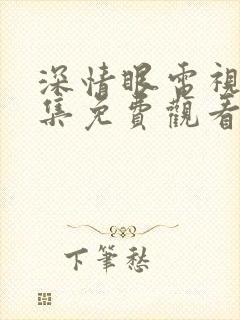 深情眼電視
集免費觀看
下筆愁